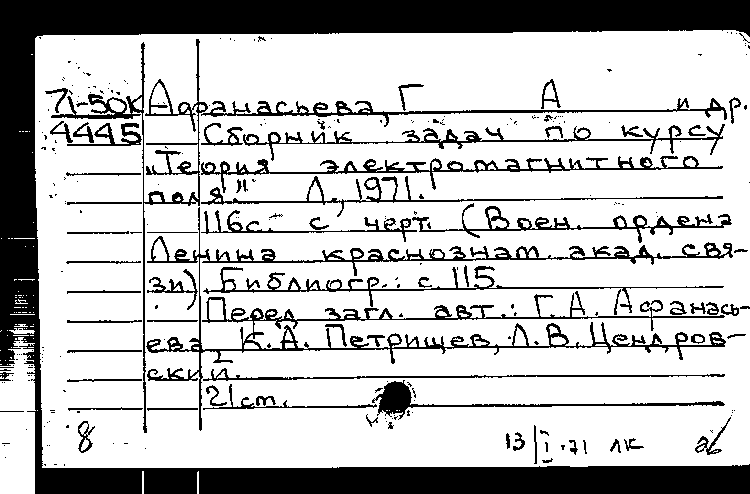 71-50К Афанасьева, Г А и др.
4445 Сборник задач по курсу
„Теория электромагнитного
поля." Л., 1971.
116с. с черт. (Воен. ордена
Ленина краснознам. акад. свя-
зи). Библиогр.: с. 115.
Перед загл. авт.: Г. А. Афанась-
ева, К. А. Петрищев, Л. В. Цендров-
ский.
21 ст.
8
13/I-71 ЛК